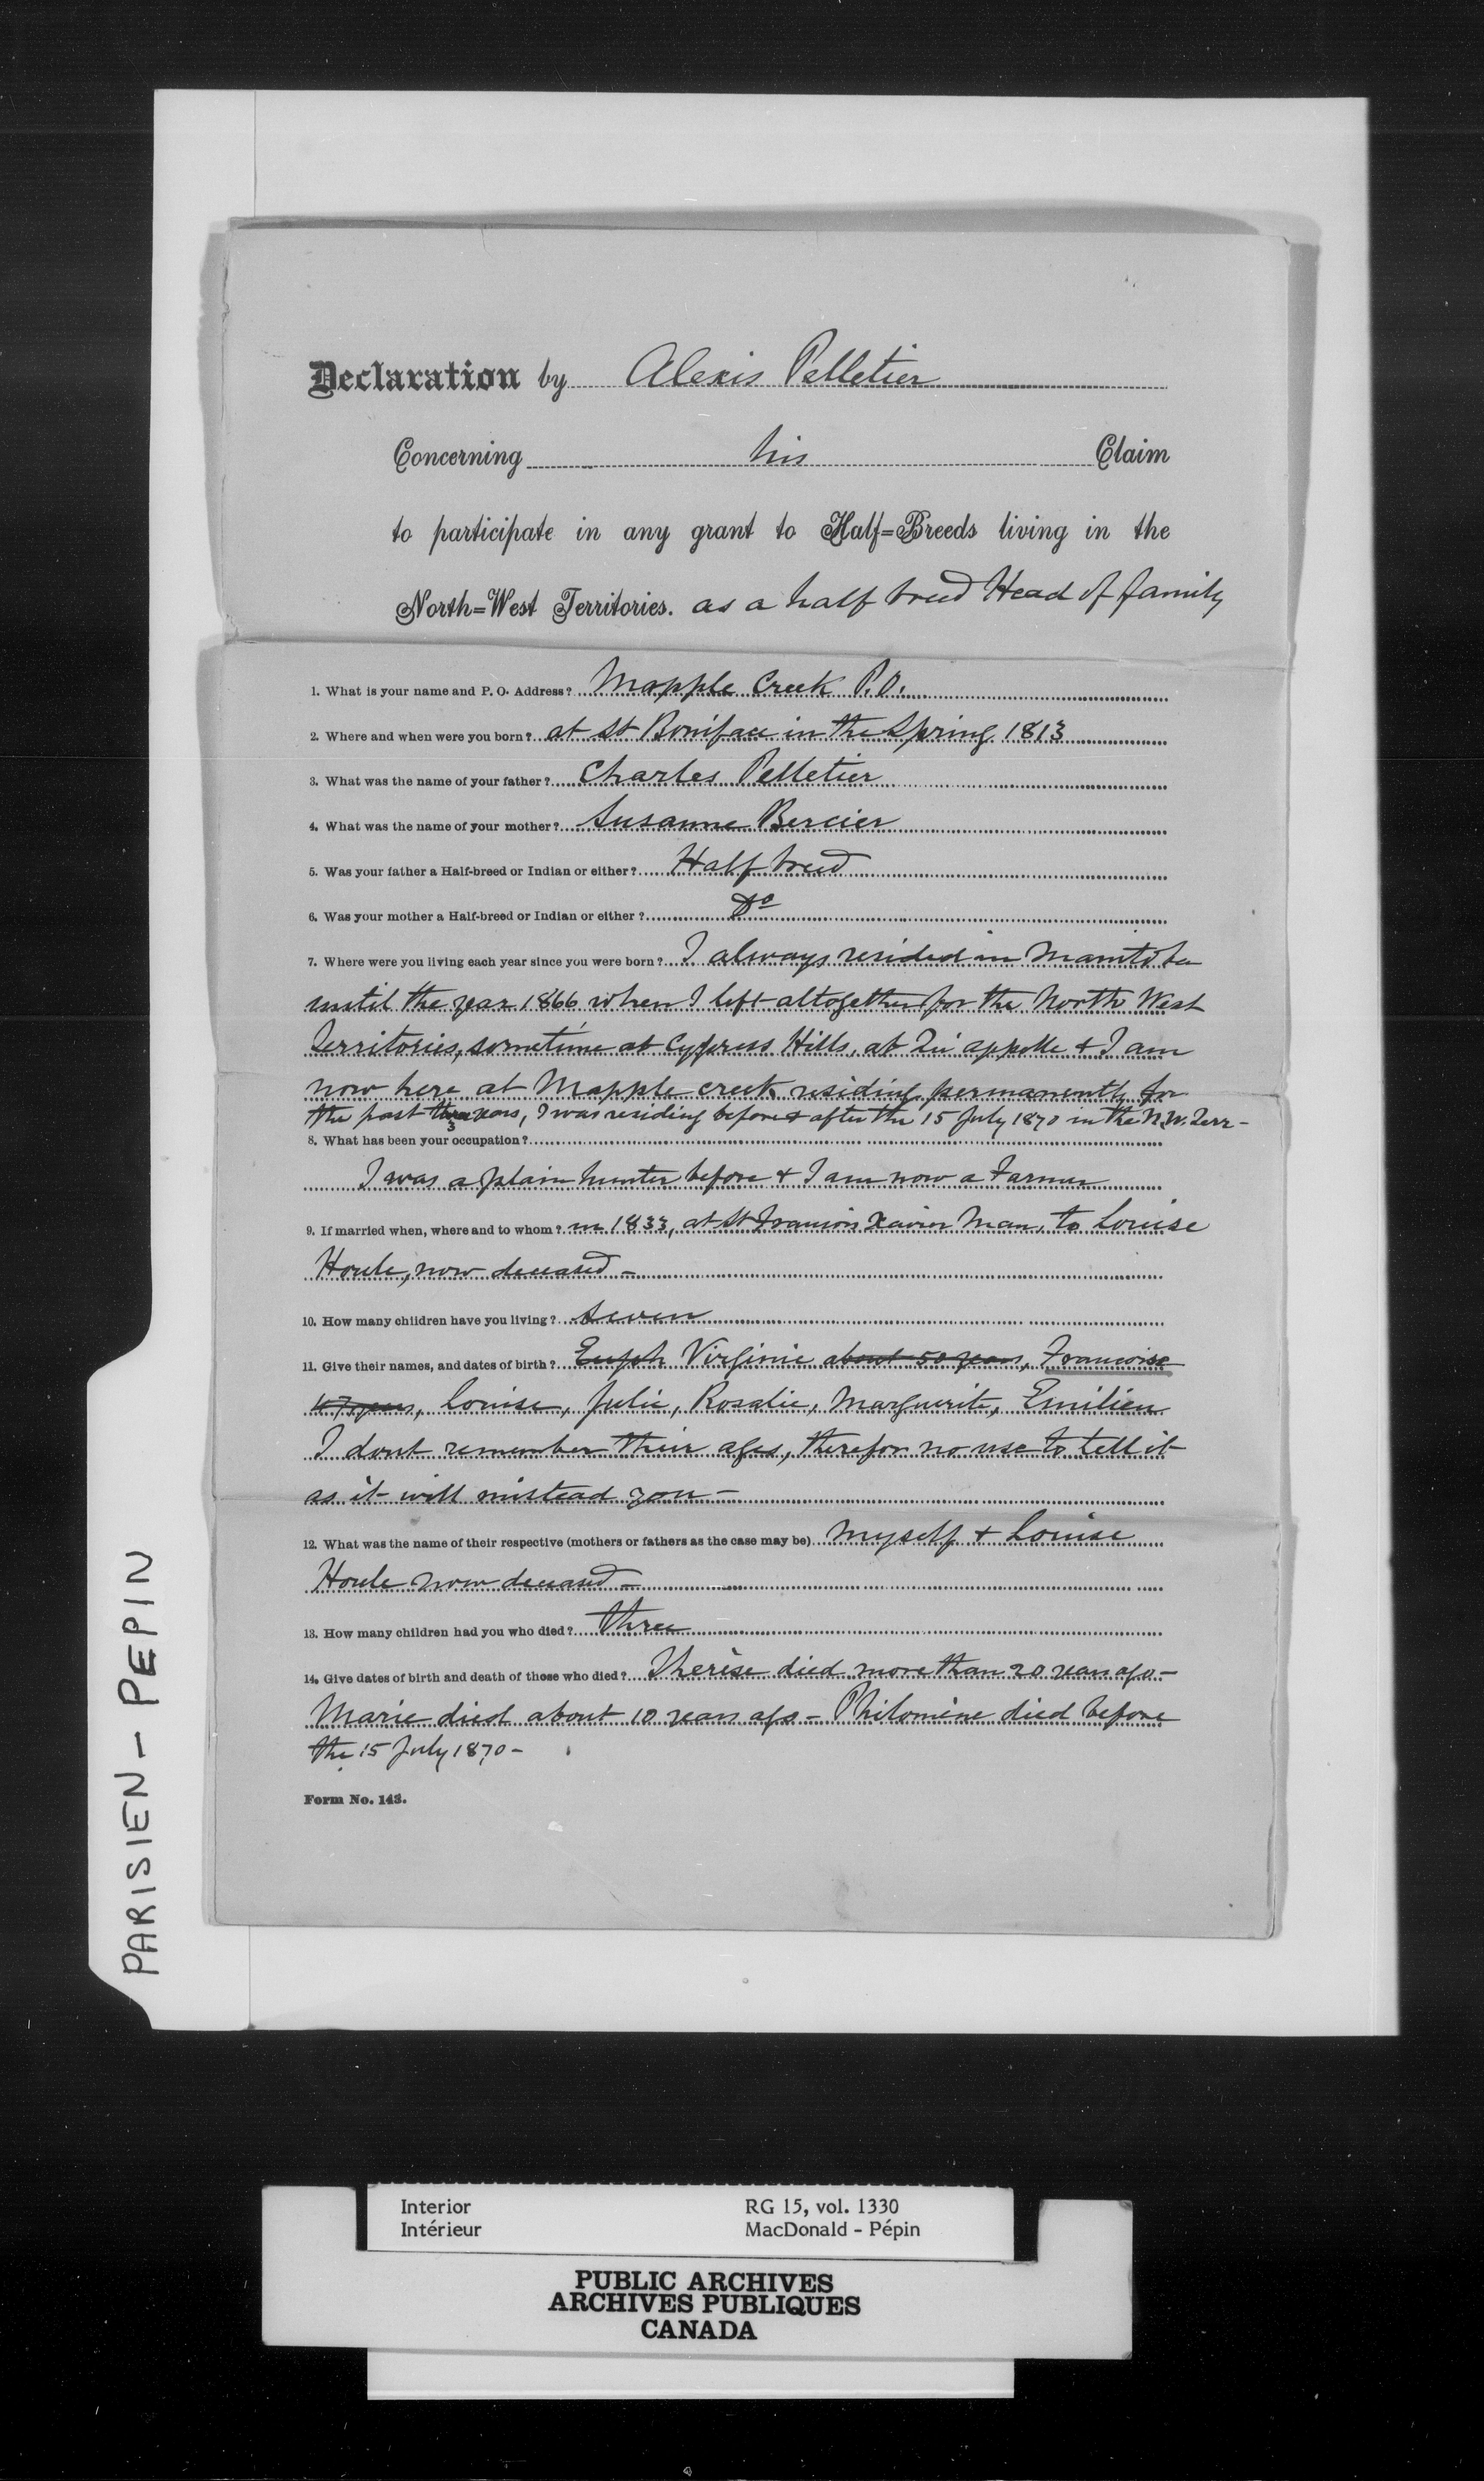 Declaration by Alexis Pelletier
Concerning his Claim
to participate in any grant to Half=Breeds living in the
North=West Territories. as a half breed Head of family
1. What is your name and P. O. Address? Mapple Creek P.O.
2. Where and when were you born? at St Boniface in the Spring 1813
3. What was the name of your father? Charles Pelletier
4. What was the name of your mother? Susanne Bercier
5. Was your father a Half-breed or Indian or either? Half breed
6. Was your mother a Half-breed or Indian or either? Do
7. Where were you living each year since you were born? I always resided in Manitoba
until the year 1866 when I left altogether for the North West
Territories, sometime at Cypress Hills, at Qu'appelle & I am
now here at Mapple creek residing permanently for
the past 3 years, I was residing before & after the 15 July 1870 in the N.W. Terr-
8. What has been your occupation?
I was a plain hunter before & I am now a Farmer
9. If married when, where and to whom? in 1833, at St Francois Xavier Man, to Louise
Houle, now deceased -
10. How many children have you living? Seven
11. Give their names, and dates of birth? Euph Virginie about 50 years, Francoise
47 years, Louise, Julie, Rosalie, Marguerite, Emilien
I dont remember their ages, therefor no use to tell it
as it will mistead you -
12. What was the name of their respective (mothers or fathers as the case may be) Myself & Louise
Houle now deceased -
13. How many children had you who died? three
14. Give dates of birth and death of those who died? Therèse died more than 20 years ago -
Marie died about 10 years ago - Philomène died before
the 15 July 1870 -
Form No. 143.
PARISIEN - PEPIN
Interior RG 15, vol. 1330
Intérieur MacDonald - Pépin
PUBLIC ARCHIVES
ARCHIVES PUBLIQUES
CANADA